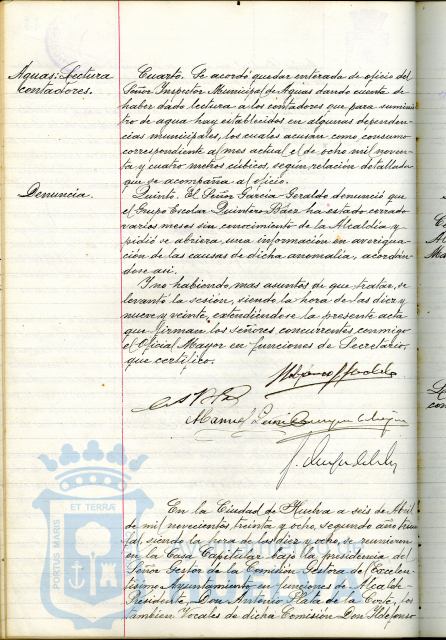 Aguas: Lectura
contadores.
Cuarto. Se acordó quedar enterada de oficio del
Señor Inspector Municipal de Aguas dando cuenta de
haber dado lectura a los contadores que para suminis
tro de agua hay establecidos en algunas dependen
cias municipales, los cuales acusan como consumo
correspondiente al mes actual el de ocho mil noven
ta y cuatro metros cúbicos, según relación detallada
que se acompaña al oficio.
Denuncia.
Quinto. El Señor García Geraldo denunció que
el Grupo Escolar Quintero Báez ha estado cerrado
varios meses sin conocimiento de la Alcaldía y
pidió se abriera una información en averigua
ción de las causas de dicha anomalía, acordán
dose así.
Y no habiendo mas asuntos de que tratar, se
levantó la sesión, siendo la hora de las diez y
nueve y veinte, extendiéndose la presente acta
que firman los señores concurrentes conmigo
el Oficial Mayor en funciones de Secretario,
que certifico.
Manuel
En la Ciudad de Huelva a seis de Abril
de mil novecientos treinta y ocho, segundo año triun
fal, siendo la hora de las diez y ocho, se reunieron
en la Casa Capitular bajo la presidencia del
Señor Gestor de la Comisión Gestora del Excelen
tísimo Ayuntamiento en funciones de Alcalde-
Presidente Don Antonio Plata de la Corte, los
también Vocales de dicha Comisión Don Ildefonso
PORTUS MARIS
ET TERRAE